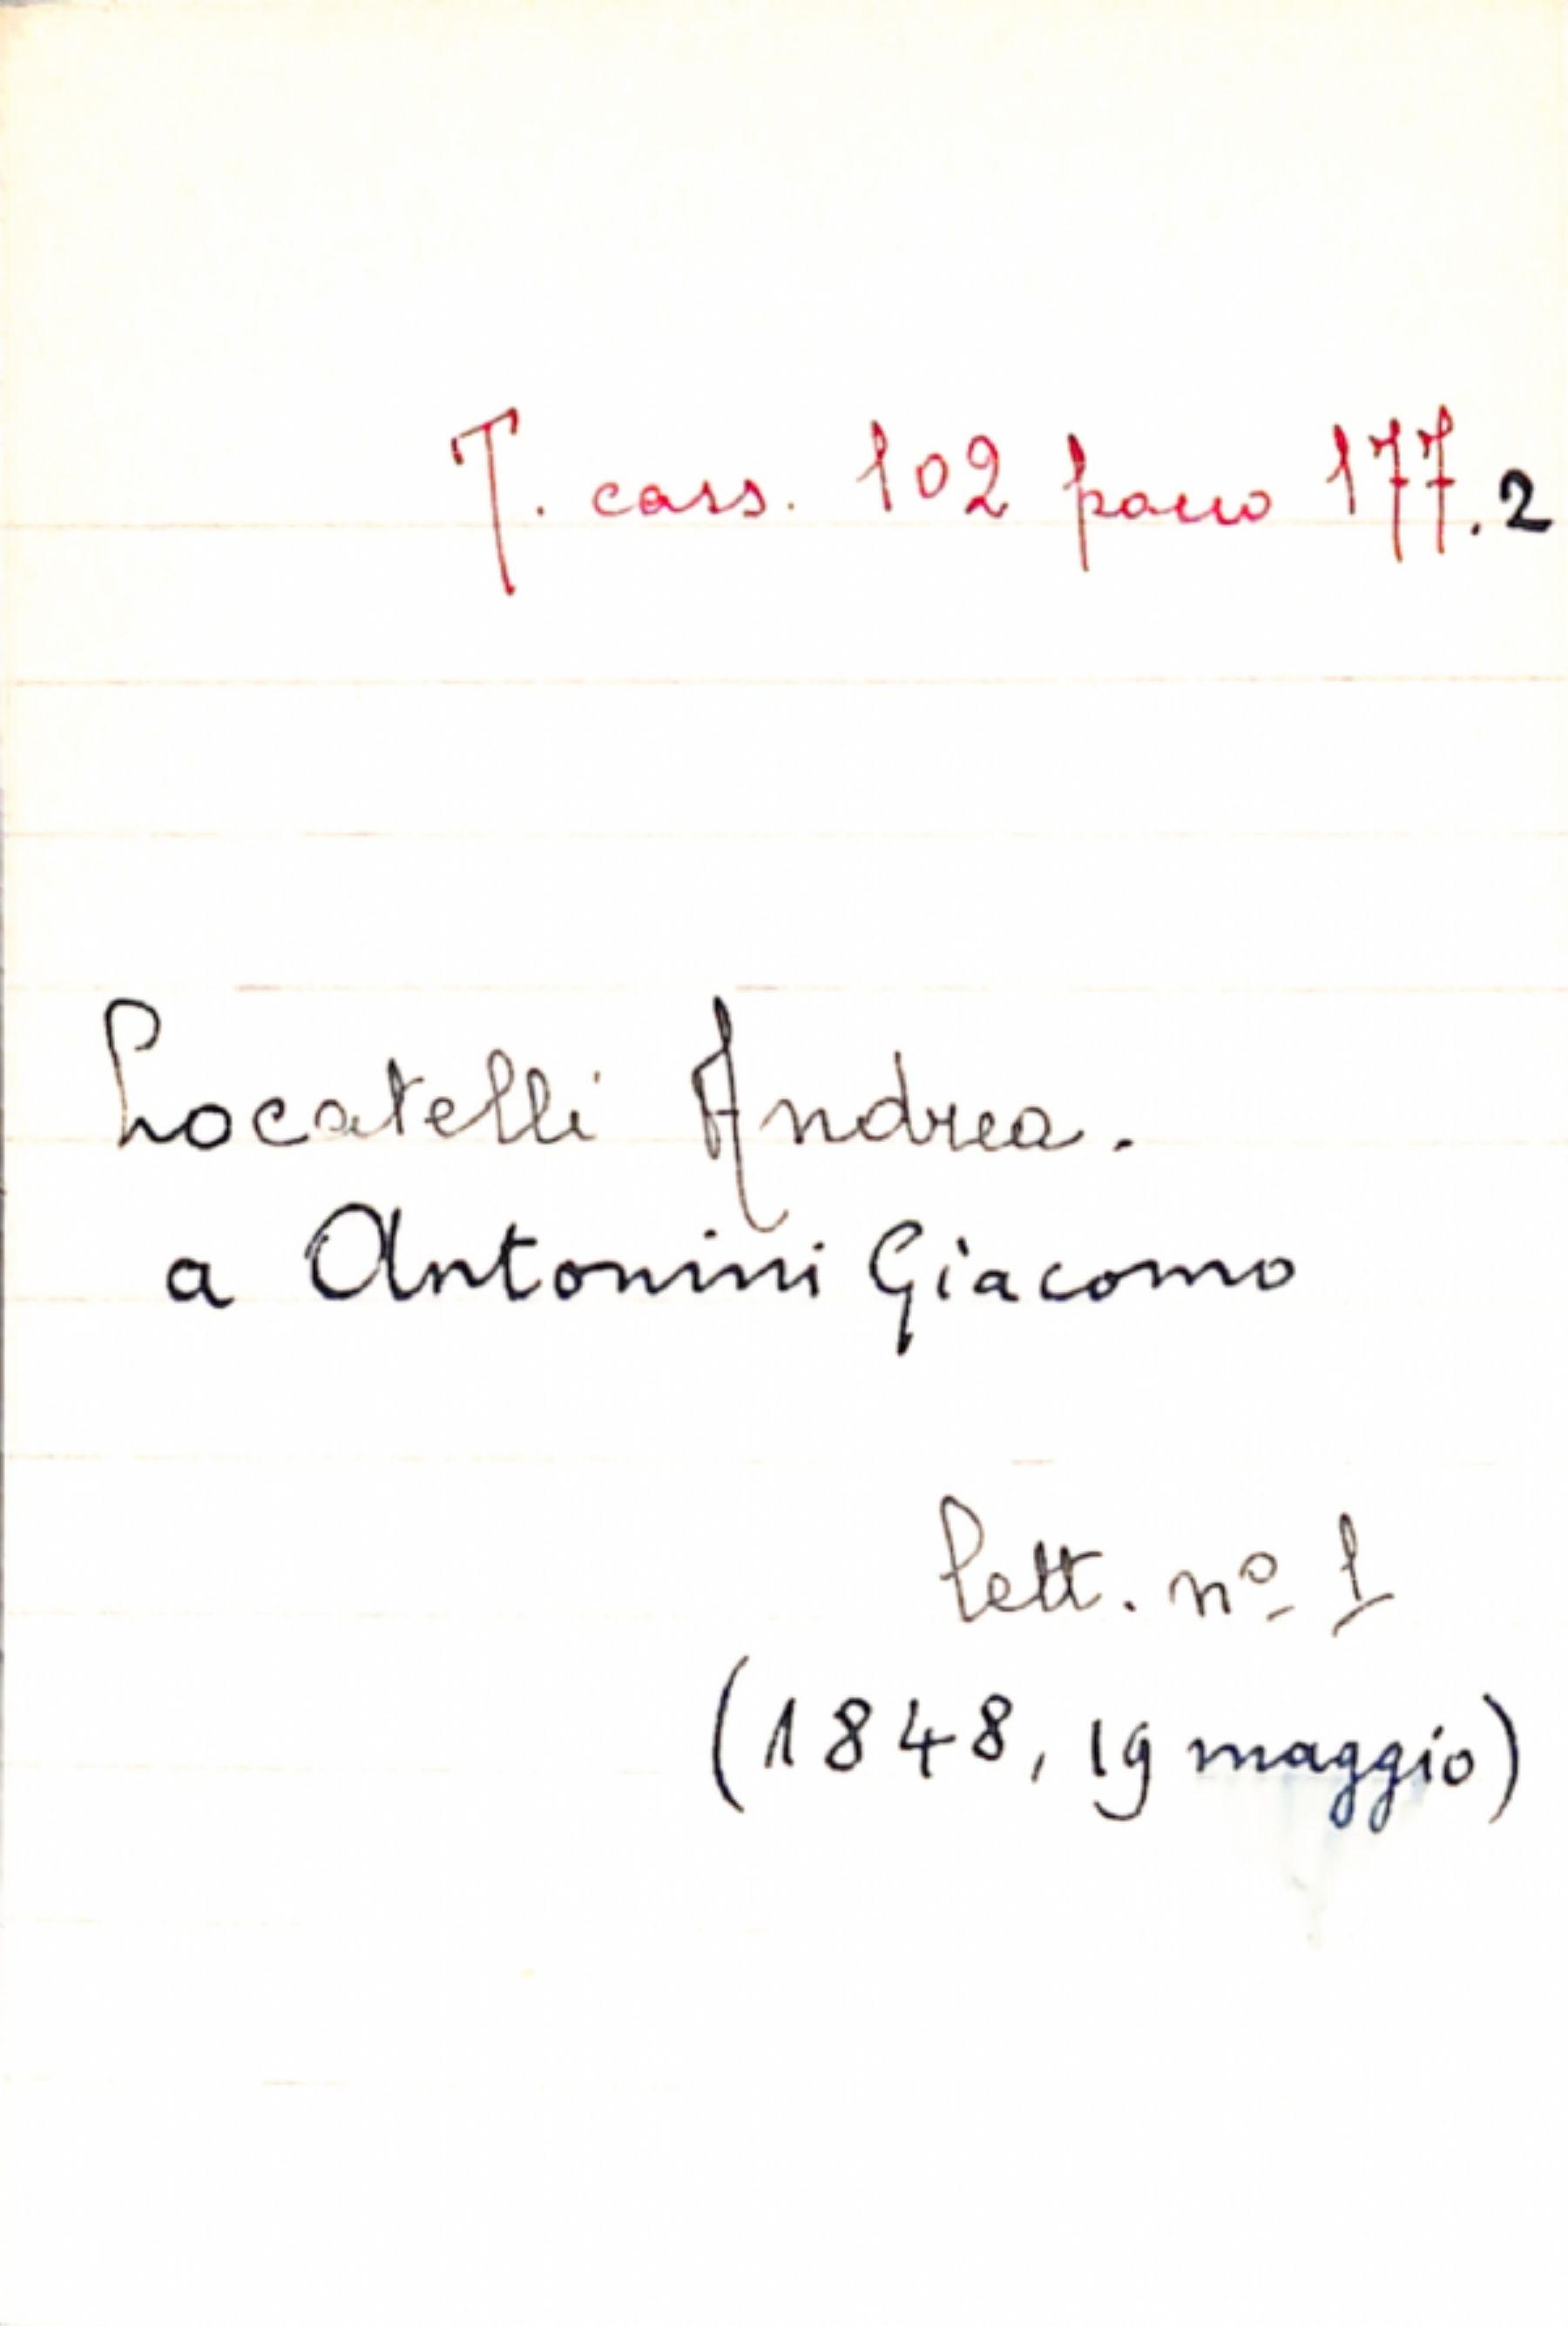 T. cass. 102 pacco 177.2
Locatelli Andrea.
a Antonini Giacomo
lett. nº 1
(1848, 19 maggio)